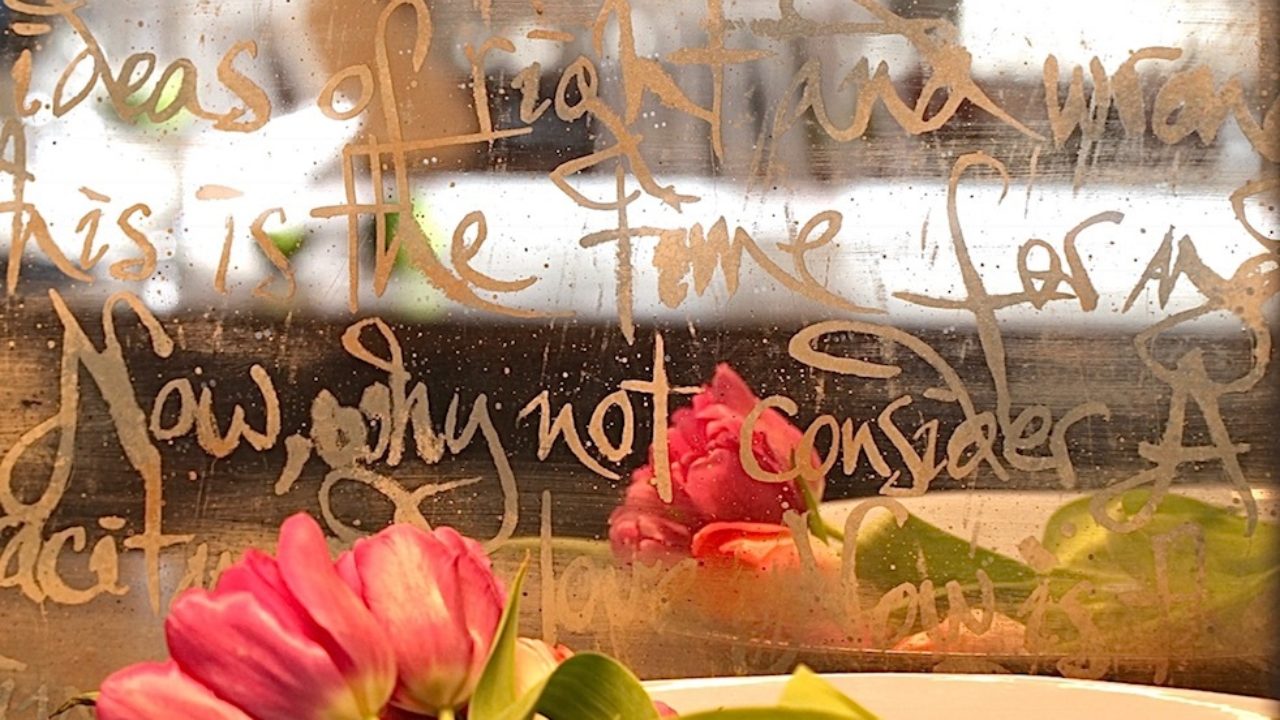 ideas of right and wrong
this is the time for
Now, why not consider A
Now is